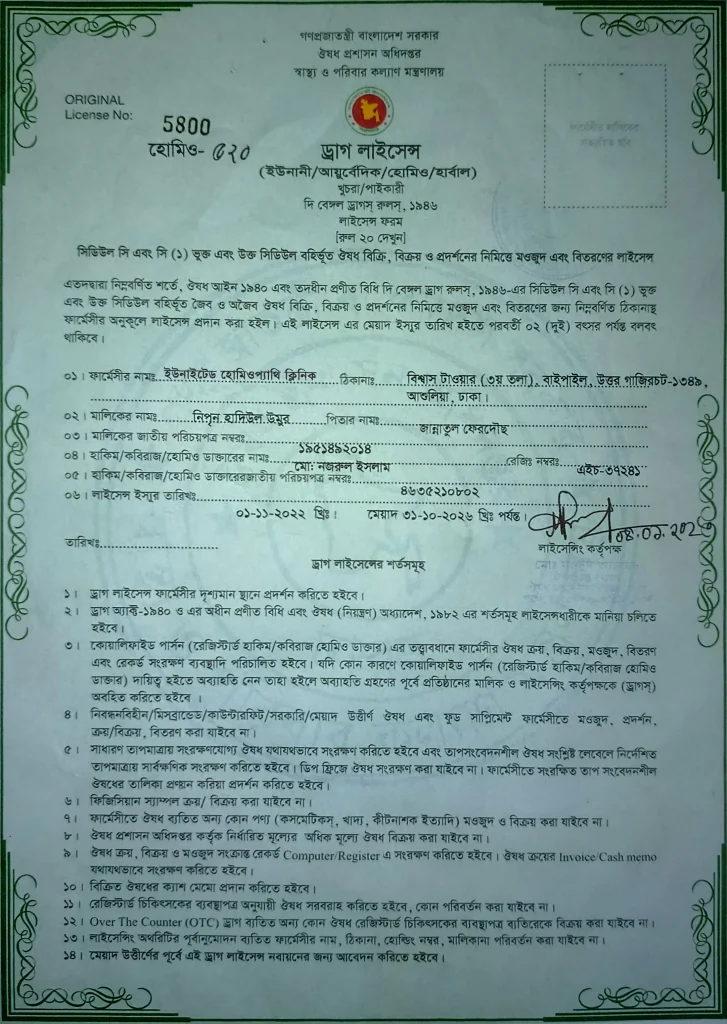 গণপ্রজাতন্ত্রী বাংলাদেশ সরকার
ঔষধ প্রশাসন অধিদপ্তর
স্বাস্থ্য ও পরিবার কল্যাণ মন্ত্রণালয়
ORIGINAL
License No:
5800
হোমিও- ৫২০
ড্রাগ লাইসেন্স
(ইউনানী/আয়ুর্বেদিক/হোমিও/হার্বাল)
খুচরা/পাইকারী
দি বেঙ্গল ড্রাগস্ রুলস্, ১৯৪৬
লাইসেন্স ফরম
[রুল ২০ দেখুন]
সিডিউল সি এবং সি (১) ভুক্ত এবং উক্ত সিডিউল বহির্ভূত ঔষধ বিক্রি, বিক্রয় ও প্রদর্শনের নিমিত্তে মওজুদ এবং বিতরণের লাইসেন্স
এতদদ্বারা নিম্নবর্ণিত শর্তে, ঔষধ আইন ১৯৪০ এবং তদধীন প্রণীত বিধি দি বেঙ্গল ড্রাগ রুলস্, ১৯৪৬-এর সিডিউল সি এবং সি (১) ভুক্ত
এবং উক্ত সিডিউল বহির্ভূত জৈব ও অজৈব ঔষধ বিক্রি, বিক্রয় ও প্রদর্শনের নিমিত্তে মওজুদ এবং বিতরণের জন্য নিম্নবর্ণিত ঠিকানাস্থ
ফার্মেসীর অনুকূলে লাইসেন্স প্রদান করা হইল। এই লাইসেন্স এর মেয়াদ ইস্যুর তারিখ হইতে পরবর্তী ০২ (দুই) বৎসর পর্যন্ত বলবৎ
থাকিবে।
০১। ফার্মেসীর নামঃ ইউনাইটেড হোমিওপ্যাথি ক্লিনিক ঠিকানাঃ বিশ্বাস টাওয়ার (৩য় তলা), বাইপাইল, উত্তর গাজিরচট-১৩৪৯,
আশুলিয়া, ঢাকা।
০২। মালিকের নামঃ নিপুন হাদিউল উমুর পিতার নামঃ জান্নাতুল ফেরদৌছ
০৩। মালিকের জাতীয় পরিচয়পত্র নম্বরঃ ১৯৫১৪৯২০১৪
০৪। হাকিম/কবিরাজ/হোমিও ডাক্তারের নামঃ মো: নজরুল ইসলাম রেজিঃ নম্বরঃ এইচ-৩৭২৪১
০৫। হাকিম/কবিরাজ/হোমিও ডাক্তারেরজাতীয় পরিচয়পত্র নম্বরঃ ৪৬৩৫২১০৮০২
০৬। লাইসেন্স ইস্যুর তারিখঃ ০১-১১-২০২২ খ্রিঃ। মেয়াদ ৩১-১০-২০২৬ খ্রিঃ পর্যন্ত।
তারিখঃ
লাইসেন্সিং কর্তৃপক্ষ
ড্রাগ লাইসেন্সের শর্তসমূহ
১। ড্রাগ লাইসেন্স ফার্মেসীর দৃশ্যমান স্থানে প্রদর্শন করিতে হইবে।
২। ড্রাগ অ্যাক্ট-১৯৪০ ও এর অধীন প্রণীত বিধি এবং ঔষধ (নিয়ন্ত্রণ) অধ্যাদেশ, ১৯৮২ এর শর্তসমূহ লাইসেন্সধারীকে মানিয়া চলিতে
হইবে।
৩। কোয়ালিফাইড পার্সন (রেজিস্টার্ড হাকিম/কবিরাজ হোমিও ডাক্তার) এর তত্ত্বাবধানে ফার্মেসীর ঔষধ ক্রয়, বিক্রয়, মওজুদ, বিতরণ
এবং রেকর্ড সংরক্ষণ ব্যবস্থাদি পরিচালিত হইবে। যদি কোন কারণে কোয়ালিফাইড পার্সন (রেজিস্টার্ড হাকিম/কবিরাজ হোমিও
ডাক্তার) দায়িত্ব হইতে অব্যাহতি নেন তাহা হইলে অব্যাহতি গ্রহণের পূর্বে প্রতিষ্ঠানের মালিক ও লাইসেন্সিং কর্তৃপক্ষকে (ড্রাগস্)
অবহিত করিতে হইবে ।
৪। নিবন্ধনবিহীন/মিসব্রান্ডেড/কাউন্টারফিট/সরকারি/মেয়াদ উত্তীর্ণ ঔষধ এবং ফুড সাপ্লিমেন্ট ফার্মেসীতে মওজুদ, প্রদর্শন,
ক্রয়/বিক্রয়, বিতরণ করা যাইবে না।
৫। সাধারণ তাপমাত্রায় সংরক্ষণযোগ্য ঔষধ যথাযথভাবে সংরক্ষণ করিতে হইবে এবং তাপসংবেদনশীল ঔষধ সংশ্লিষ্ট লেবেলে নির্দেশিত
তাপমাত্রায় সার্বক্ষণিক সংরক্ষণ করিতে হইবে। ডিপ ফ্রিজে ঔষধ সংরক্ষণ করা যাইবে না। ফার্মেসীতে সংরক্ষিত তাপ সংবেদনশীল
ঔষধের তালিকা প্রণয়ন করিয়া প্রদর্শন করিতে হইবে।
৬। ফিজিসিয়ান স্যাম্পল ক্রয়/ বিক্রয় করা যাইবে না।
৭। ফার্মেসীতে ঔষধ ব্যতিত অন্য কোন পণ্য (কসমেটিকস্, খাদ্য, কীটনাশক ইত্যাদি) মওজুদ ও বিক্রয় করা যাইবে না।
৮। ঔষধ প্রশাসন অধিদপ্তর কর্তৃক নির্ধারিত মূল্যের অধিক মূল্যে ঔষধ বিক্রয় করা যাইবে না।
৯। ঔষধ ক্রয়, বিক্রয় ও মওজুদ সংক্রান্ত রেকর্ড Computer/Register এ সংরক্ষণ করিতে হইবে। ঔষধ ক্রয়ের Invoice/Cash memo
যথাযথভাবে সংরক্ষণ করিতে হইবে।
১০। বিক্রিত ঔষধের ক্যাশ মেমো প্রদান করিতে হইবে।
১১। রেজিস্টার্ড চিকিৎসকের ব্যবস্থাপত্র অনুযায়ী ঔষধ সরবরাহ করিতে হইবে, কোন পরিবর্তন করা যাইবে না।
১২। Over The Counter (OTC) ড্রাগ ব্যতিত অন্য কোন ঔষধ রেজিস্টার্ড চিকিৎসকের ব্যবস্থাপত্র ব্যতিরেকে বিক্রয় করা যাইবে না।
১৩। লাইসেন্সিং অথরিটির পূর্বানুমোদন ব্যতিত ফার্মেসীর নাম, ঠিকানা, হোল্ডিং নম্বর, মালিকানা পরিবর্তন করা যাইবে না।
১৪। মেয়াদ উত্তীর্ণের পূর্বে এই ড্রাগ লাইসেন্স নবায়নের জন্য আবেদন করিতে হইবে।